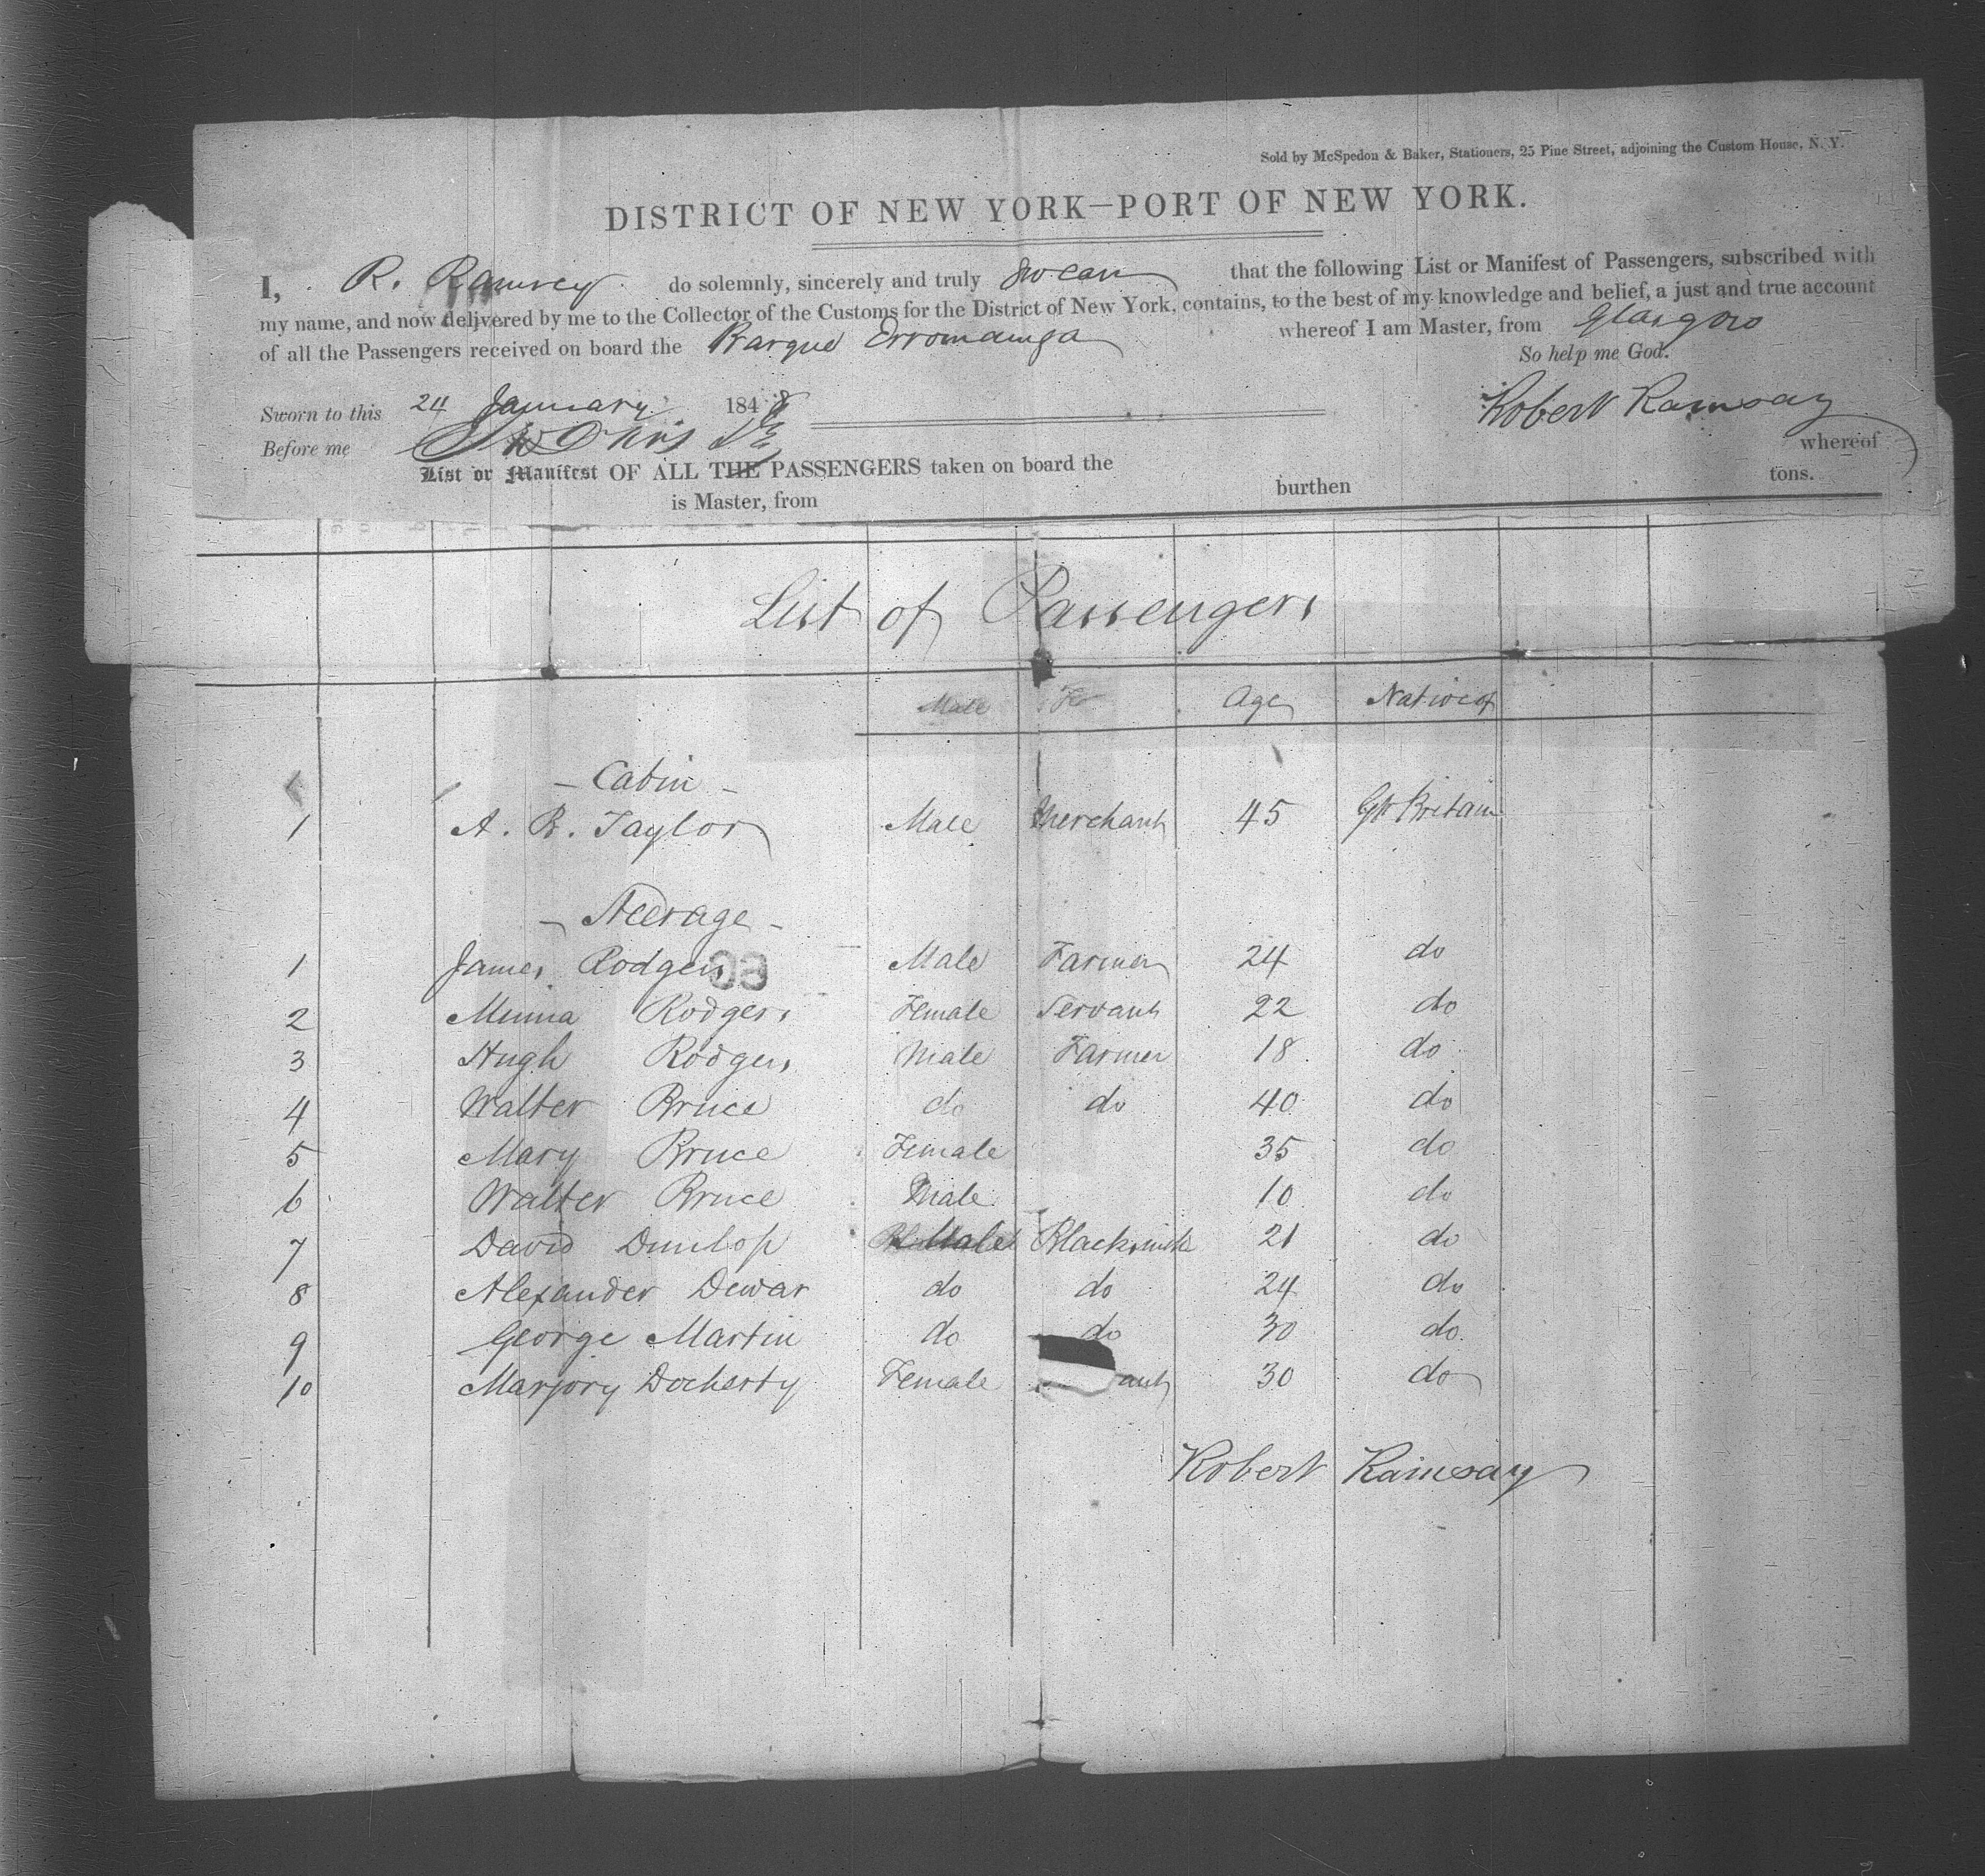 Sold by McSpedon & Baker, Stationers, 25 Pine Street, adjoining the Custom House, N. Y.
DISTRICT OF NEW YORK—PORT OF NEW YORK.
I, R. Ramsey do solemnly, sincerely and truly swear that the following List or Manifest of Passengers, subscribed with
my name, and now delivered by me to the Collector of the Customs for the District of New York, contains, to the best of my knowledge and belief, a just and true account
of all the Passengers received on board the Barque Erromanga whereof I am Master, from Glasgow
So help me God.
Sworn to this 24 January 1848 Robert Ramsay
Before me
List or Manifest OF ALL THE PASSENGERS taken on board the whereof
is Master, from burthen tons.
List of Passengers
Male Age Native of
- Cabin -
1 A. B. Taylor Male Merchant 45 Gt Britain
- Steerage -
1 James Rodgers Male Farmer 24 do
2 Minna Rodgers Female Servant 22 do
3 Hugh Rodgers Male Farmer 18 do
4 Walter Bruce do do 40 do
5 Mary Bruce Female 35 do
6 Walter Bruce Male 10 do
7 David Dunlop Male Blacksmith 21 do
8 Alexander Dewar do do 24 do
9 George Martin do do 30 do
10 Marjory Docherty Female ant 30 do
Robert Ramsay